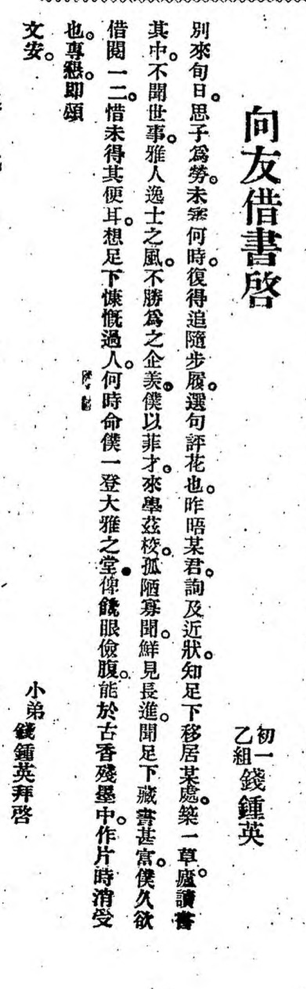 向友借書啓
初一
乙組 錢鍾英
別來旬日。思子爲勞。未審何時。復得追隨步履。選句評花也。昨晤某君。詢及近狀。知足下移居某處。築一草廬。讀書
其中。不聞世事。雅人逸士之風。不勝爲之企羨。僕以菲才。來學茲校。孤陋寡聞。鮮見長進。聞足下藏書甚富。僕久欲
借閱一二。惜未得其便耳。想足下慷慨過人。何時命僕一登大雅之堂。俾饞眼儉腹。能於古香殘墨中。作片時消受
也。專懇。即頌
文安。
小弟
錢鍾英拜啓